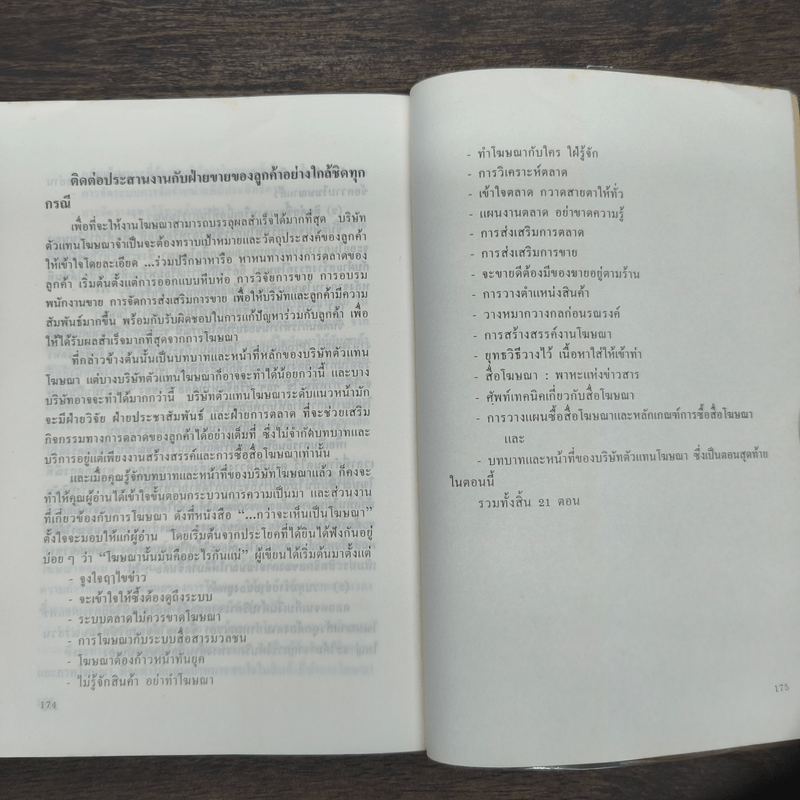 ติดต่อประสานงานกับฝ่ายขายของลูกค้าอย่างใกล้ชิดทุก
กรณี
เพื่อที่จะให้งานโฆษณาสามารถบรรลุผลสำเร็จได้มากที่สุด บริษัท
ตัวแทนโฆษณาจำเป็นจะต้องทราบเป้าหมายและวัตถุประสงค์ของลูกค้า
ให้เข้าใจโดยละเอียด ...ร่วมปรึกษาหารือ หาหนทางทางการตลาดของ
ลูกค้า เริ่มต้นตั้งแต่การออกแบบหีบห่อ การวิจัยการขาย การอบรม
พนักงานขาย การจัดการส่งเสริมการขาย เพื่อให้บริษัทและลูกค้ามีความ
สัมพันธ์มากขึ้น พร้อมกับรับผิดชอบในการแก้ปัญหาร่วมกับลูกค้า เพื่อ
ให้ได้รับผลสำเร็จมากที่สุดจากการโฆษณา
ที่กล่าวข้างต้นนั้นเป็นบทบาทและหน้าที่หลักของบริษัทตัวแทน
โฆษณา แต่บางบริษัทตัวแทนโฆษณาก็อาจจะทำได้น้อยกว่านี้ และบาง
บริษัทอาจจะทำได้มากกว่านี้ บริษัทตัวแทนโฆษณาระดับแนวหน้ามัก
จะมีฝ่ายวิจัย ฝ่ายประชาสัมพันธ์ และฝ่ายการตลาด ที่จะช่วยเสริม
กิจกรรมทางการตลาดของลูกค้าได้อย่างเต็มที่ ซึ่งไม่จำกัดบทบาทและ
บริการอยู่แต่เพียงงานสร้างสรรค์และการซื้อสื่อโฆษณาเท่านั้น
และเมื่อคุณรู้จักบทบาทและหน้าที่ของบริษัทโฆษณาแล้ว ก็คงจะ
ทำให้คุณผู้อ่านได้เข้าใจขั้นตอนกระบวนการความเป็นมา และส่วนงาน
ที่เกี่ยวข้องกับการโฆษณา ดังที่หนังสือ “...กว่าจะเห็นเป็นโฆษณา”
ตั้งใจจะมอบให้แก่ผู้อ่าน โดยเริ่มต้นจากประโยคที่ได้ยินได้ฟังกันอยู่
บ่อยๆ ว่า “โฆษณานั้นมันคืออะไรกันแน่” ผู้เขียนได้เริ่มต้นมาตั้งแต่
- จูงใจฤๅไขข่าว
- จะเข้าใจให้ซึ้งต้องดูถึงระบบ
- ระบบตลาดไม่ควรขาดโฆษณา
- การโฆษณากับระบบสื่อสารมวลชน
- โฆษณาต้องก้าวหน้าทันยุค
- ไม่รู้จักสินค้า อย่าทำโฆษณา
174
- ทำโฆษณากับใคร ใฝ่รู้จัก
- การวิเคราะห์ตลาด
- เข้าใจตลาด กวาดสายตาให้ทั่ว
- แผนงานตลาด อย่าขาดความรู้
- การส่งเสริมการตลาด
- การส่งเสริมการขาย
- จะขายดีต้องมีของขายอยู่ตามร้าน
- การวางตำแหน่งสินค้า
- วางหมากวางกลก่อนรณรงค์
- การสร้างสรรค์งานโฆษณา
- ยุทธวิธีวางไว้ เนื้อหาใส่ให้เข้าท่า
- สื่อโฆษณา : พาหะแห่งข่าวสาร
- ศัพท์เทคนิคเกี่ยวกับสื่อโฆษณา
- การวางแผนซื้อสื่อโฆษณาและหลักเกณฑ์การซื้อสื่อโฆษณา
และ
- บทบาทและหน้าที่ของบริษัทตัวแทนโฆษณา ซึ่งเป็นตอนสุดท้าย
ในตอนนี้
รวมทั้งสิ้น 21 ตอน
175